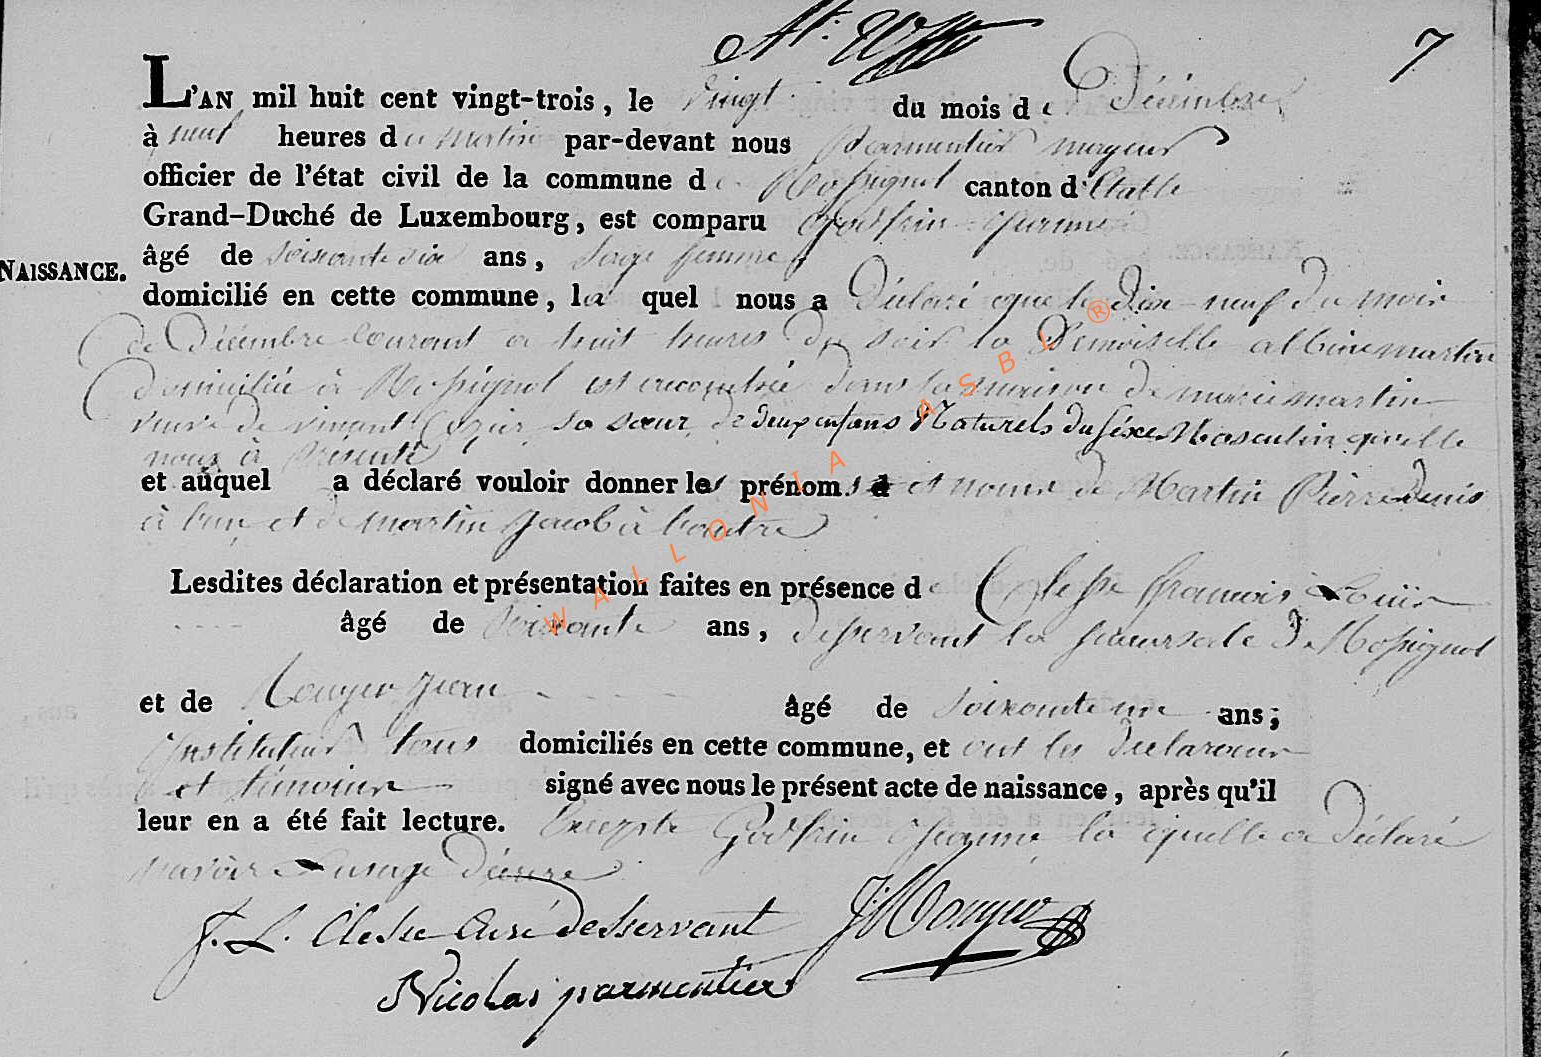 7
L'AN mil huit cent vingt-trois, le vingt du mois de Décembre
à neuf heures du matin par-devant nous Parmentier mayeur
officier de l'état civil de la commune de Rossignol canton d'Etalle
Grand-Duché de Luxembourg, est comparu Godfrin Jeanne
âgé de soixante six ans, sage femme
NAISSANCE.
domicilié en cette commune, la quel nous a Déclaré que le dix-neuf du mois
de Décembre courant a huit heures du soir la Demoiselle albine martin
domiciliée à Rossignol est accouchée dans la maison de marie martin
veuve de vincent sa sœur de deux enfans Naturels du séxe Masculin qu'elle
nous à Présenté
et auquel a déclaré vouloir donner les prénoms et noms de Martin Pierre denis
à l'un et de martin jacob à l'autre
Lesdites déclaration et présentation faites en présence de Clesse francois Louis
âgé de soixante ans, desservant la succursale de Rossignol
et de jean âgé de soixante une ans;
Instituteur tous domiciliés en cette commune, et ont les déclarants
et témoins signé avec nous le présent acte de naissance, après qu'il
leur en a été fait lecture. Excepté Godfrin Jeanne la quelle a Déclaré
L'usage D'écrire
f. L. Clesse Curé desservant
Nicolas parmentier
WALLONIA ASBL ®